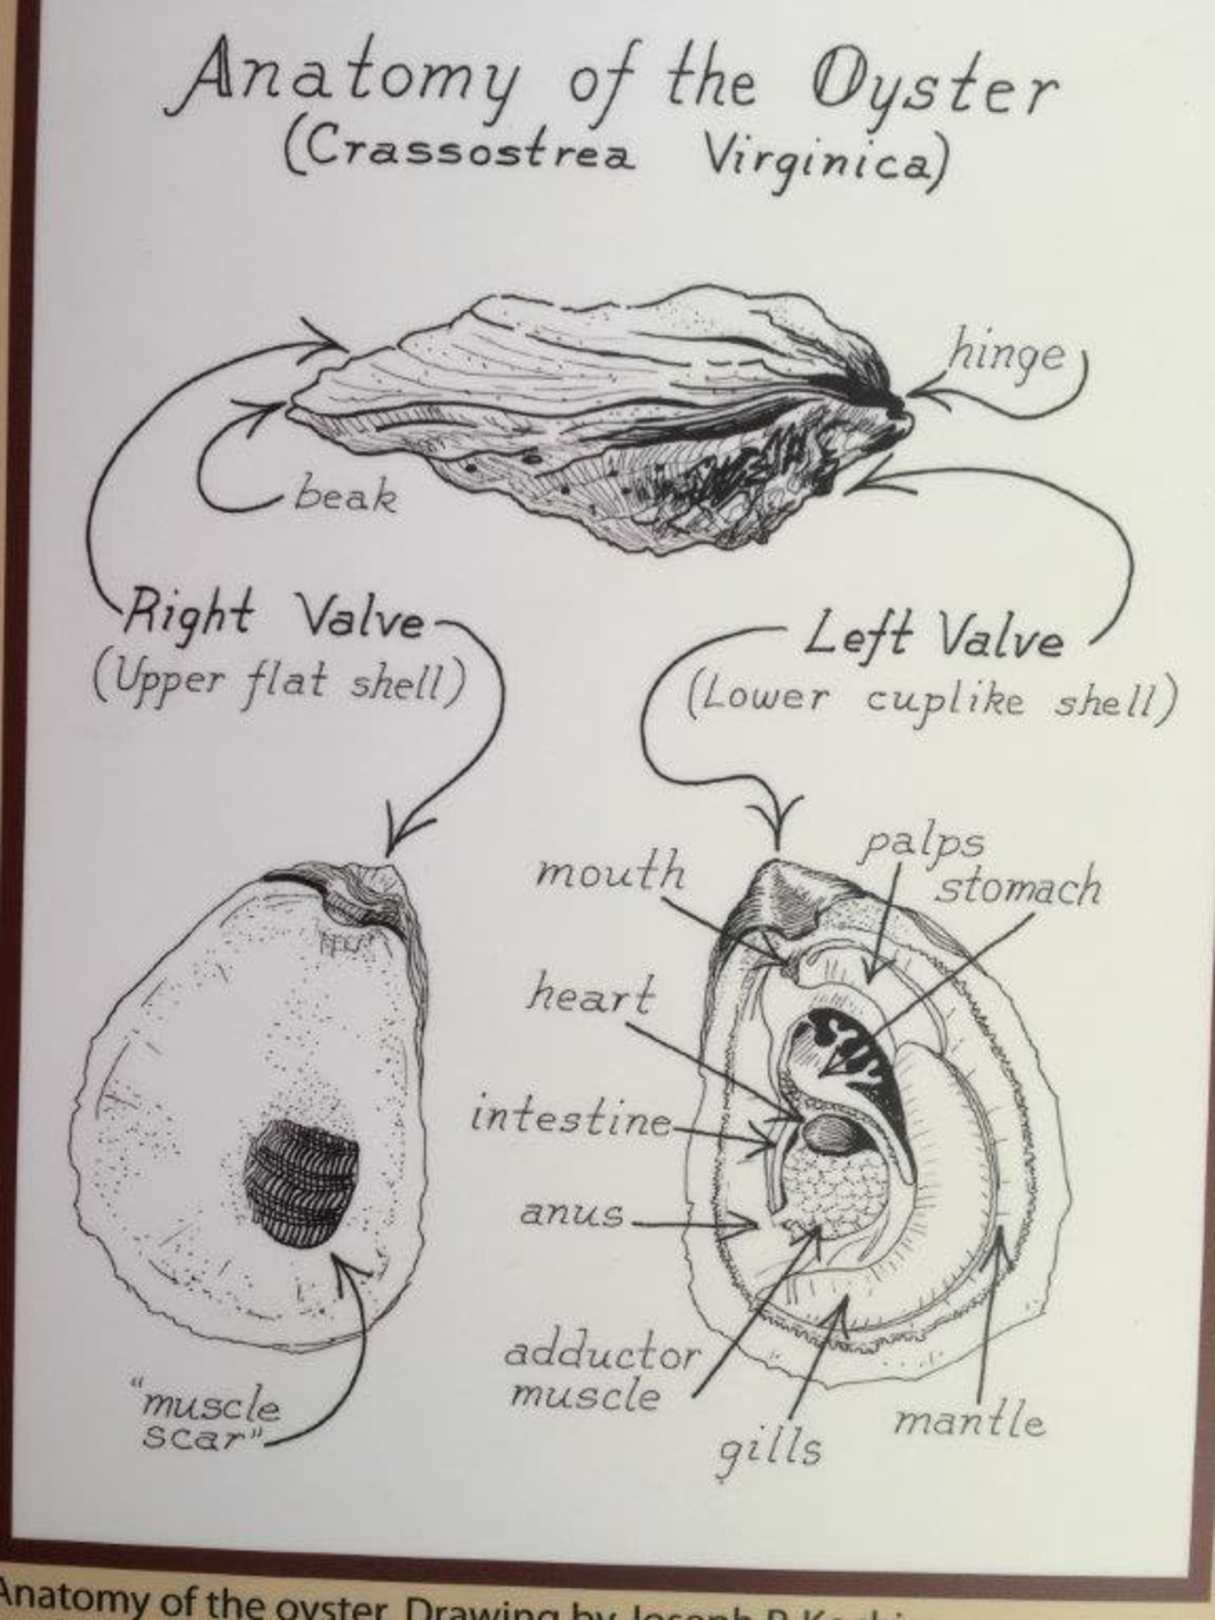 Anatomy of the Oyster
(Crassostrea Virginica)
hinge
beak
Right Valve
(Upper flat shell)
Left Valve
(Lower cuplike shell)
mouth
palps
stomach
heart
intestine
anus
adductor
muscle
gills
mantle
"muscle
scar"
Anatomy of the oyster. Drawing by Joseph P.